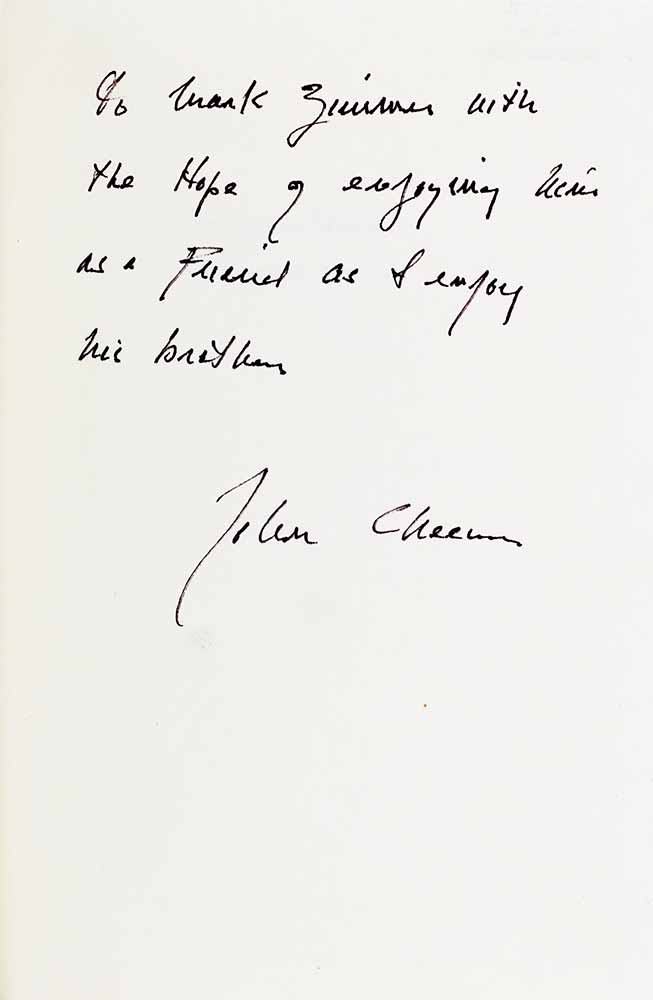 To Mark Zimmer with
the Hope of enjoying him
as a Friend as I enjoy
his brother
John Cheever